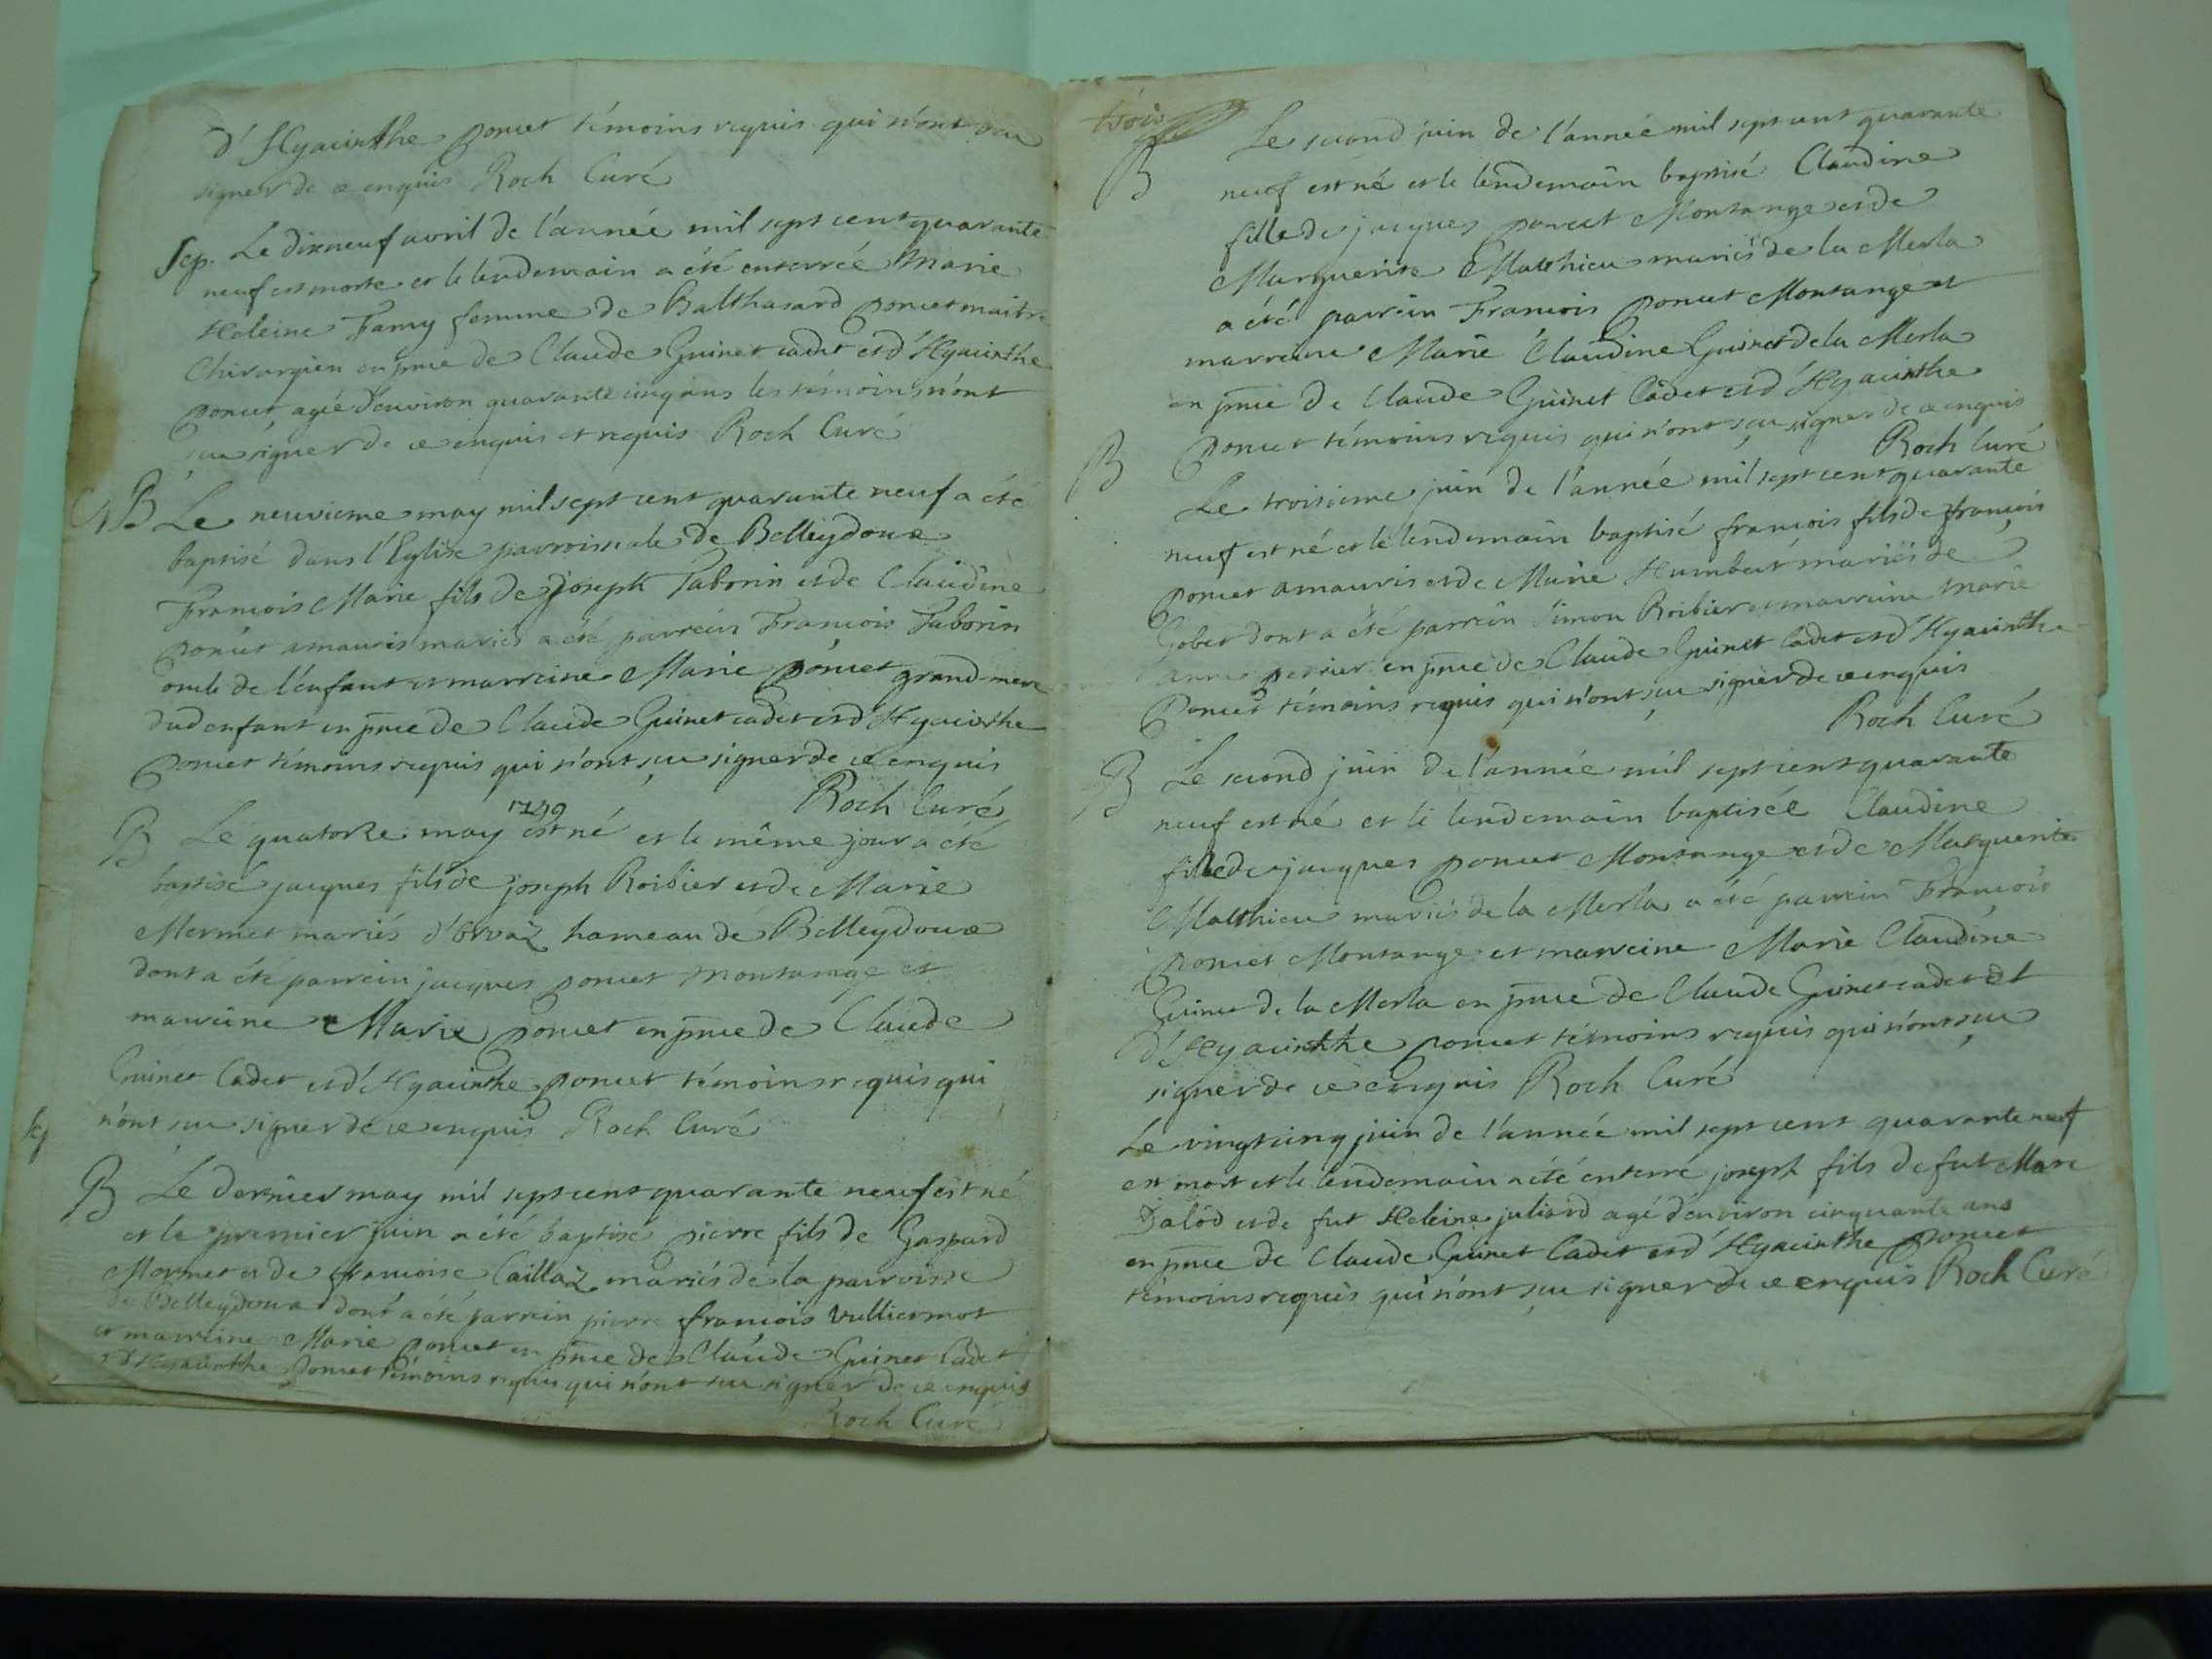 d'Hyacinthe poncet témoins requis qui n'ont sçu
signer de ce enquis Roch Curé
Sep. Le dixneuf avril de l'année mil sept cent quarante
neuf est morte et le lendemain a été enterrée Marie
Heleine Famy femme de Balthasard poncet maitre
Chirurgien en pnce de Claude Guinet cadet et d'Hyacinthe
poncet, agée d'environ quarante cinq ans les témoins n'ont
sçu signer de ce enquis et requis Roch Curé
B Le neuvieme may mil sept cent quarante neuf a été
baptisé dans l'Eglise parroissiale de Belleydoux
François Marie fils de joseph Taborin et de Claudine
poncet amauris mariés a été parrein François Taborin
oncle de l'enfant et marreine Marie poncet grand-mere
dud enfant en pnce de Claude Guinet cadet et d'Hyacinthe
poncet témoins requis qui n'ont sçu signer de ce enquis
Roch Curé
1749
B Le quatorze may est né et le même jour a été
baptisé jacques fils de joseph Roibier et de Marie
Mermet mariés d'Orvaz hameau de Belleydoux
dont a été parrein jacques poncet montange et
marreine Marie poncet en pnce de Claude
Guinet Cadet et d'Hyacinthe poncet témoins requis qui
n'ont sçu signer de ce enquis Roch Curé
B Le dernier may mil sept cent quarante neuf est né
et le premier juin a été baptisé pierre fils de Gaspard
Mermet et de françoise Caillaz mariés de la parroisse
de Belleydoux dont a été parrein pierre françois Vuilliermot
et marreine Marie poncet en pnce de Claude Guinet Cadet
et d'Hyacinthe poncet témoins requis qui n'ont sçu signer de ce enquis
Roch Curé
trois
B Le second juin de l'année mil sept cent quarante
neuf est né et le lendemain baptisé Claudine
fille de jacques poncet Montange et de
Marguerite Matthieu mariés de la Merla
a été parrein François poncet Montange et
marreine Marie Claudine Guinet de la Merla
en pnce de Claude Guinet Cadet et d'Hyacinthe
poncet témoins requis qui n'ont sçu signer de ce enquis
Roch Curé
B Le troisieme juin de l'année mil sept cent quarante
neuf est né et le lendemain baptisé françois fils de françois
poncet amauris et de Marie Humbert mariés de
Gobet dont a été parrein Simon Roibier et marreine Marie
anne perrier en pnce de Claude Guinet Cadet et d'Hyacinthe
Poncet témoins requis qui n'ont sçu signer de ce enquis
Roch Curé
B Le second juin de l'année mil sept cent quarante
neuf est né et le lendemain baptisée Claudine
fille de jacques poncet Montange et de Marguerite
Matthieu mariés de la Merla a été parrein François
poncet Montange et marreine Marie Claudine
Guinet de la Merla en pnce de Claude Guinet cadet et
d'Hyacinthe poncet témoins requis qui n'ont sçu
signer de ce enquis Roch Curé
Le vingt cinq juin de l'année mil sept cent quarante neuf
est mort et le lendemain a été enterré joseph fils de fut Marc
Dalod et de fut Heleine juliard agé d'environ cinquante ans
en pnce de Claude Guinet Cadet et d'Hyacinthe poncet
témoins requis qui n'ont sçu signer de ce enquis Roch Curé